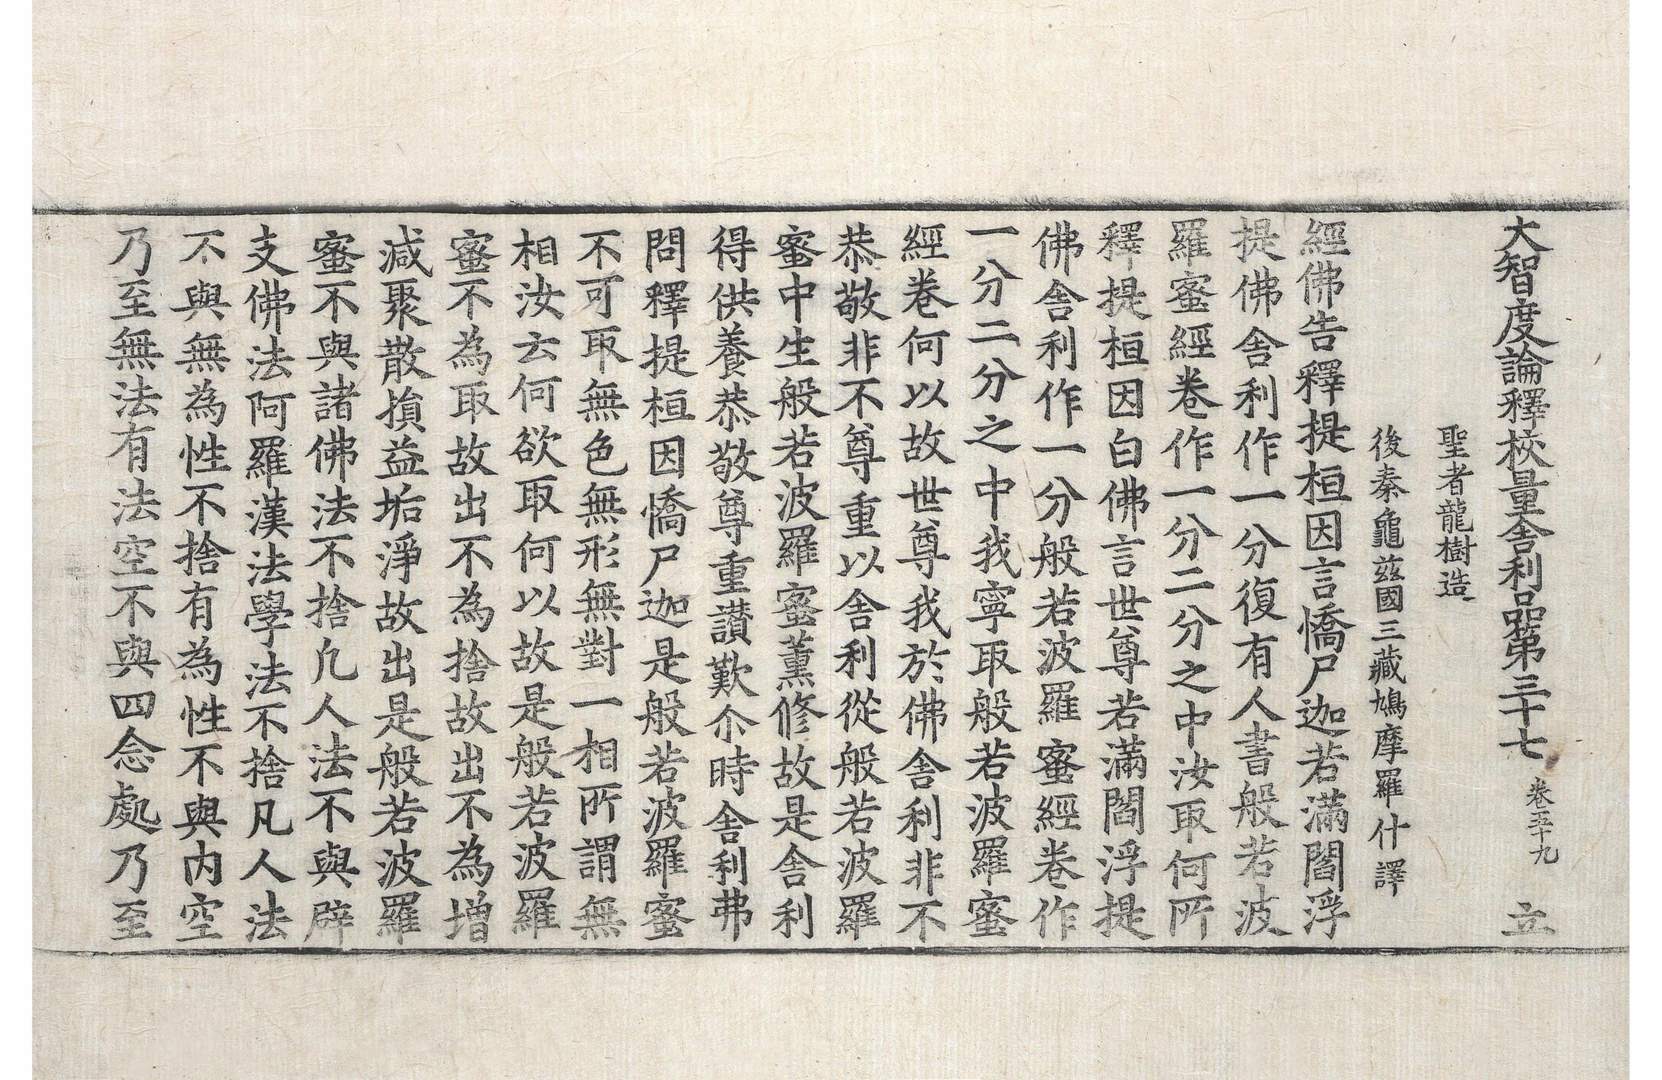 大智度論釋校量舍利品第三十七 卷五十九 立
聖者龍樹造
後秦龜茲國三藏鳩摩羅什譯
經佛告釋提桓因言憍尸迦若滿閻浮
提佛舍利作一分復有人書般若波
羅蜜經卷作一分二分之中汝取何所
釋提桓因白佛言世尊若滿閻浮提
佛舍利作一分般若波羅蜜經卷作
一分二分之中我寧取般若波羅蜜
經卷何以故世尊我於佛舍利非不
恭敬非不尊重以舍利從般若波羅
蜜中生般若波羅蜜薰修故是舍利
得供養恭敬尊重讃歎尒時舍利弗
問釋提桓因憍尸迦是般若波羅蜜
不可取無色無形無對一相所謂無
相汝云何欲取何以故是般若波羅
蜜不為取故出不為捨故出不為增
減聚散損益垢淨故出是般若波羅
蜜不與諸佛法不捨凢人法不與辟
支佛法阿羅漢法學法不捨凡人法
不與無為性不捨有為性不與內空
乃至無法有法空不與四念處乃至